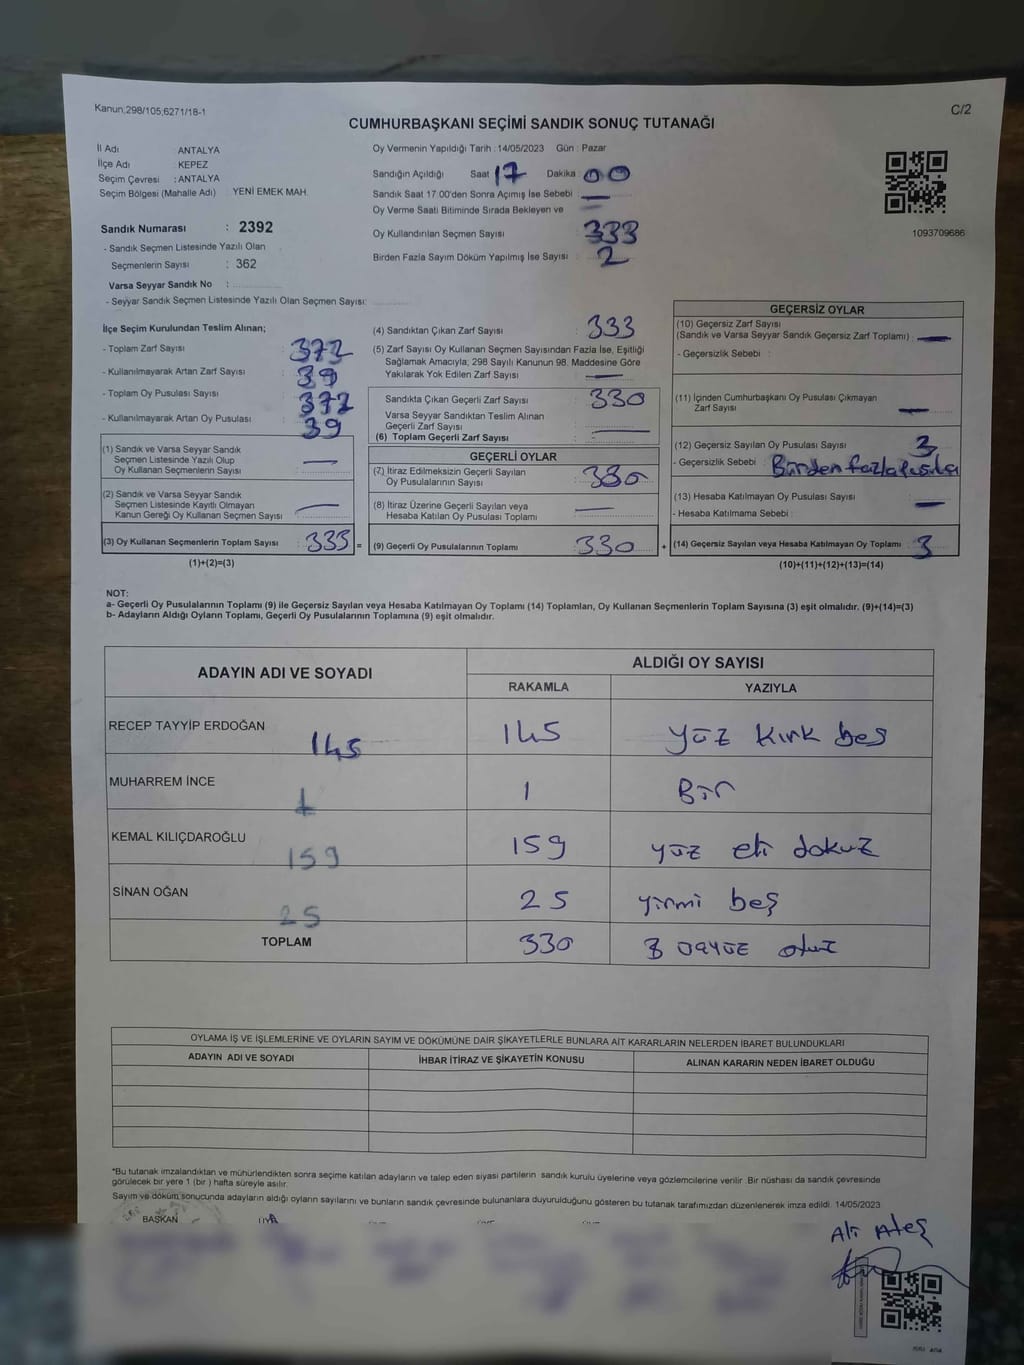 Kanun;298/105;6271/18-1
C/2
CUMHURBAŞKANI SEÇİMİ SANDIK SONUÇ TUTANAĞI
İl Adı ANTALYA
İlçe Adı KEPEZ
Seçim Çevresi : ANTALYA
Seçim Bölgesi (Mahalle Adı) YENİ EMEK MAH.
Sandık Numarası : 2392
- Sandık Seçmen Listesinde Yazılı Olan
Seçmenlerin Sayısı : 362
Varsa Seyyar Sandık No :
- Seyyar Sandık Seçmen Listesinde Yazılı Olan Seçmen Sayısı:
Oy Vermenin Yapıldığı Tarih :14/05/2023 Gün : Pazar
Sandığın Açıldığı Saat 17 Dakika 00
Sandık Saat 17:00'den Sonra Açımış İse Sebebi : —
Oy Verme Saati Bitiminde Sırada Bekleyen ve —
Oy Kullandırılan Seçmen Sayısı 333
Birden Fazla Sayım Döküm Yapılmış İse Sayısı : 2
1093709686
İlçe Seçim Kurulundan Teslim Alınan;
- Toplam Zarf Sayısı : 372
- Kullanılmayarak Artan Zarf Sayısı : 39
- Toplam Oy Pusulası Sayısı : 372
- Kullanılmayarak Artan Oy Pusulası : 39
(1) Sandık ve Varsa Seyyar Sandık
Seçmen Listesinde Yazılı Olup
Oy Kullanan Seçmenlerin Sayısı —
(2) Sandık ve Varsa Seyyar Sandık
Seçmen Listesinde Kayıtlı Olmayan
Kanun Gereği Oy Kullanan Seçmen Sayısı —
(3) Oy Kullanan Seçmenlerin Toplam Sayısı : 333 =
(1)+(2)=(3)
(4) Sandıktan Çıkan Zarf Sayısı : 333
(5) Zarf Sayısı Oy Kullanan Seçmen Sayısından Fazla İse, Eşitliği
Sağlamak Amacıyla; 298 Sayılı Kanunun 98. Maddesine Göre
Yakılarak Yok Edilen Zarf Sayısı —
Sandıkta Çıkan Geçerli Zarf Sayısı : 330
Varsa Seyyar Sandıktan Teslim Alınan
Geçerli Zarf Sayısı —
(6) Toplam Geçerli Zarf Sayısı :
GEÇERLİ OYLAR
(7) İtiraz Edilmeksizin Geçerli Sayılan
Oy Pusulalarının Sayısı 330
(8) İtiraz Üzerine Geçerli Sayılan veya
Hesaba Katılan Oy Pusulası Toplamı —
(9) Geçerli Oy Pusulalarının Toplamı : 330 +
GEÇERSİZ OYLAR
(10) Geçersiz Zarf Sayısı
(Sandık ve Varsa Seyyar Sandık Geçersiz Zarf Toplamı) : —
- Geçersizlik Sebebi :
(11) İçinden Cumhurbaşkanı Oy Pusulası Çıkmayan
Zarf Sayısı —
(12) Geçersiz Sayılan Oy Pusulası Sayısı 3
- Geçersizlik Sebebi : Birden fazla Pusula
(13) Hesaba Katılmayan Oy Pusulası Sayısı —
- Hesaba Katılmama Sebebi :
(14) Geçersiz Sayılan veya Hesaba Katılmayan Oy Toplamı : 3
(10)+(11)+(12)+(13)=(14)
NOT:
a- Geçerli Oy Pusulalarının Toplamı (9) ile Geçersiz Sayılan veya Hesaba Katılmayan Oy Toplamı (14) Toplamları, Oy Kullanan Seçmenlerin Toplam Sayısına (3) eşit olmalıdır. (9)+(14)=(3)
b- Adayların Aldığı Oyların Toplamı, Geçerli Oy Pusulalarının Toplamına (9) eşit olmalıdır.
ADAYIN ADI VE SOYADI ALDIĞI OY SAYISI
RAKAMLA YAZIYLA
RECEP TAYYİP ERDOĞAN 145 145 yüz kırk beş
MUHARREM İNCE 1 1 Bir
KEMAL KILIÇDAROĞLU 159 159 yüz elli dokuz
SİNAN OĞAN 25 25 yirmi beş
TOPLAM 330 otuz
OYLAMA İŞ VE İŞLEMLERİNE VE OYLARIN SAYIM VE DÖKÜMÜNE DAİR ŞİKAYETLERLE BUNLARA AİT KARARLARIN NELERDEN İBARET BULUNDUKLARI
ADAYIN ADI VE SOYADI İHBAR İTİRAZ VE ŞİKAYETİN KONUSU ALINAN KARARIN NEDEN İBARET OLDUĞU
*Bu tutanak imzalandıktan ve mühürlendikten sonra seçime katılan adayların ve talep eden siyasi partilerin sandık kurulu üyelerine veya gözlemcilerine verilir. Bir nüshası da sandık çevresinde
görülecek bir yere 1 (bir ) hafta süreyle asılır.
Sayım ve döküm sonucunda adayların aldığı oyların sayılarını ve bunların sandık çevresinde bulunanlara duyurulduğunu gösteren bu tutanak tarafımızdan düzenlenerek imza edildi. 14/05/2023
BAŞKAN ÜYE
Ali Ateş